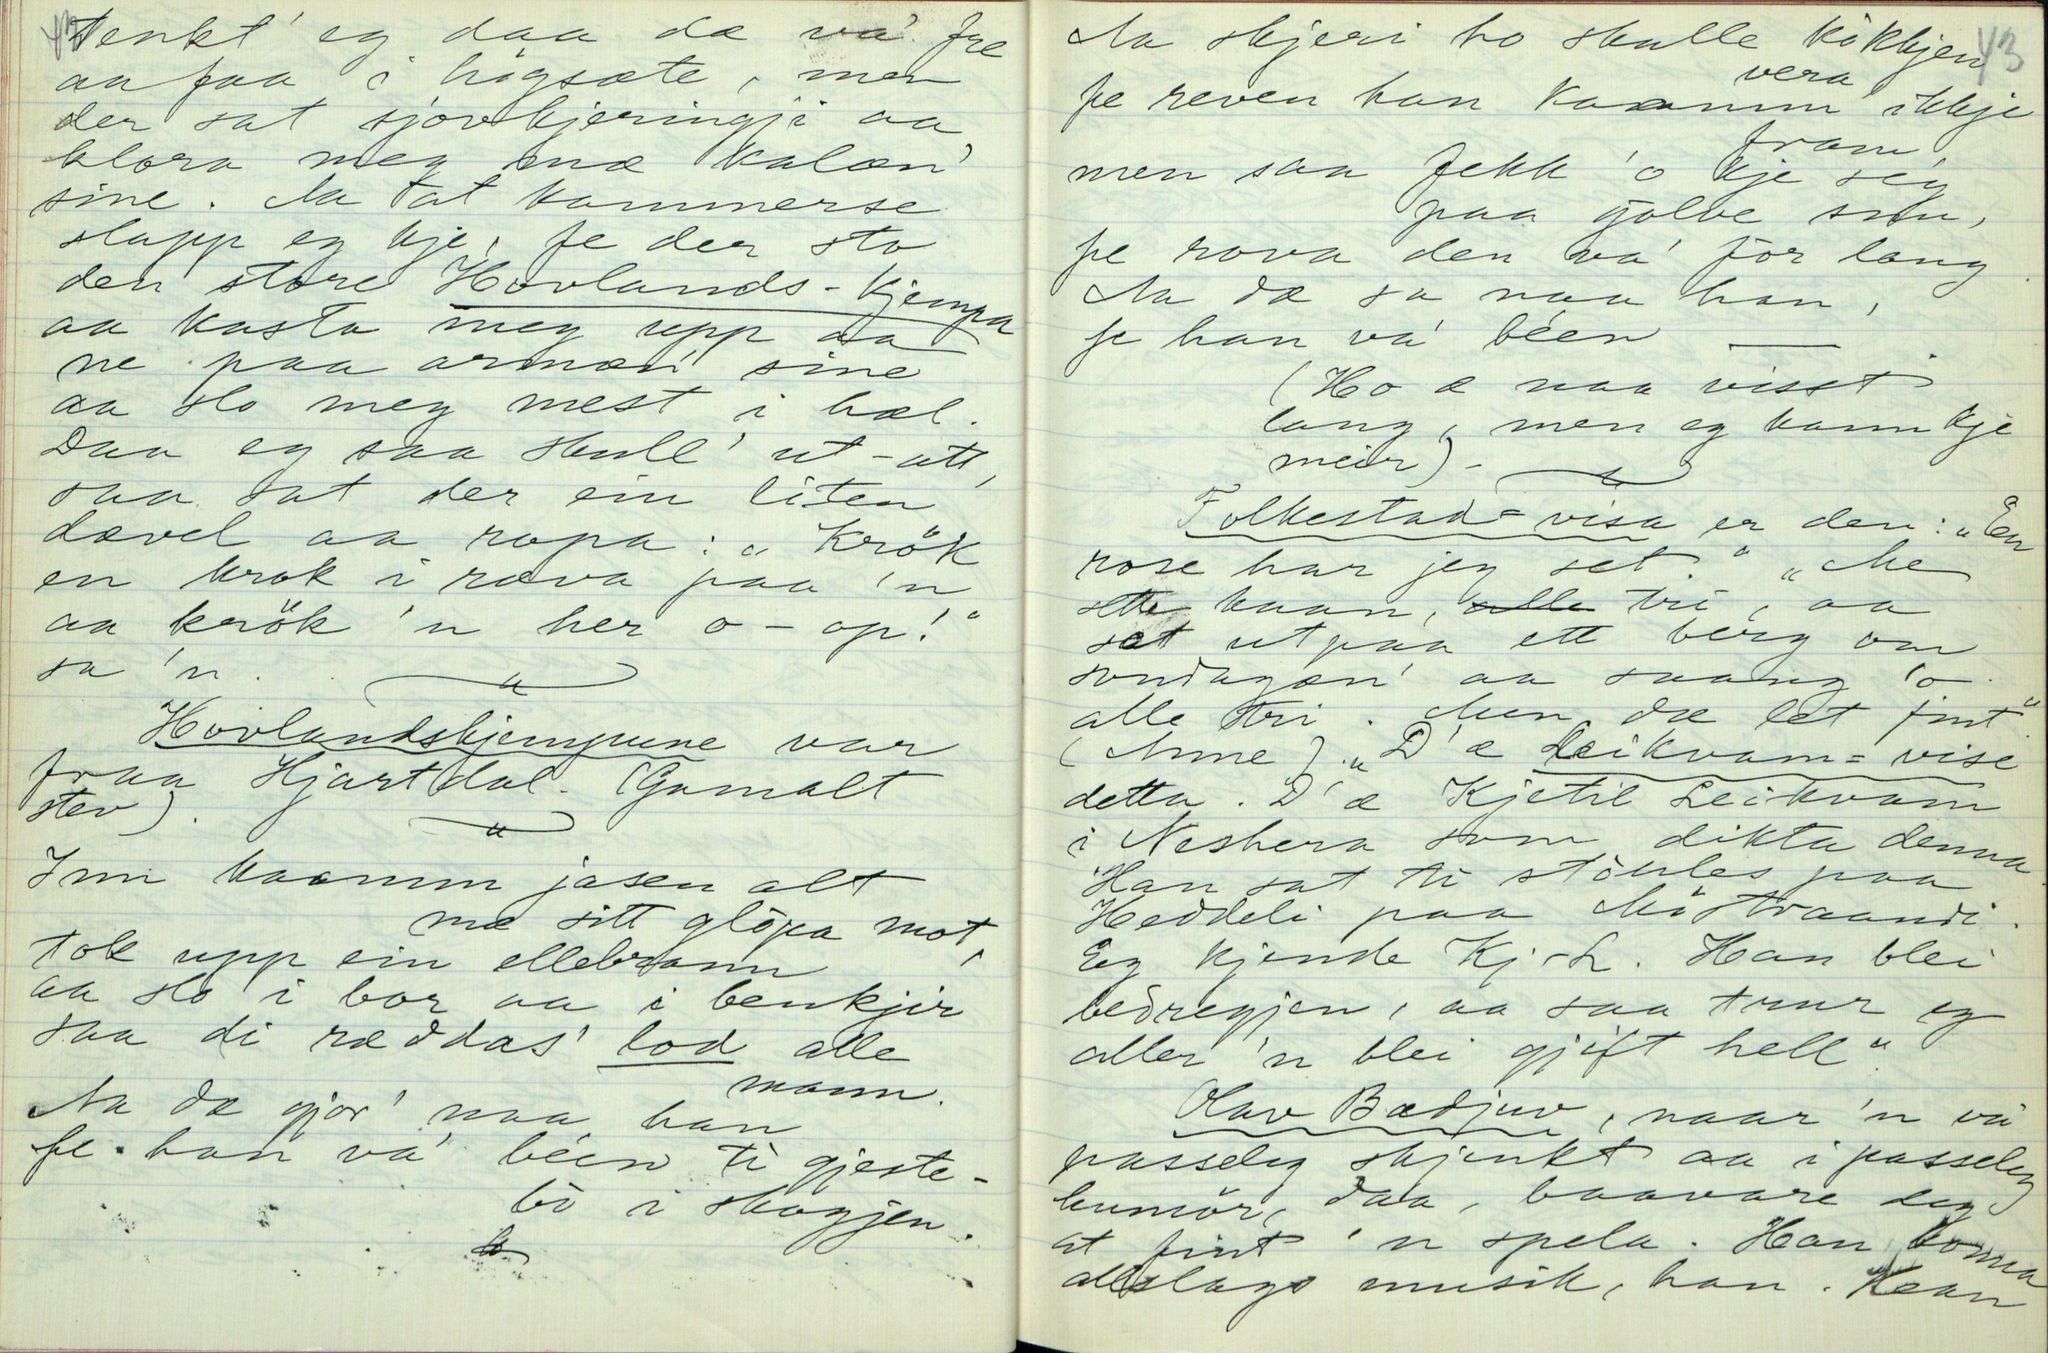 42
tenkt' eg daa dæ va' fre
aa faa i högsæte, men
der sat sjövkjeringji aa
klora meg mæ kalæn'
sine. Aa tat kammerse
slapp eg kje, fe der sto
den store Hovlands-kjempa
aa kasta meg upp aa
ne paa armæn' sine
aa slo meg mest i hæl.
Daa eg saa skull' ut-att,
saa sat der ein liten
dævel aa ropa: "Krök
en krok i ræva paa 'n
aa krök 'n her o-op!"
sa 'n.
Hovlandskjempune var
fraa Hjartdal. (Gamalt
stev).
Inn kaamm jasen alt
mæ sitt glöpa mot,
tok upp ein ellebrann
aa slo i bor aa i benkjir
saa di ræddas' lod alle
mann.
Aa dæ gjor' naa han
fe han va' béen ti gjeste-
bö i skogjen.
43
Aa skjeri ho skulle kökkjen
vera
fe reven han kaamm ikkje
fram
men saa fekk 'o kje seg
paa golve snu,
fe rova den va' for lang
Aa dæ sa naa han,
fe han va' béen —
(Ho æ naa visst
lang, men eg kann kje
meir) -
Folkestad-visa er den: "En
rose har jeg set." "Me
sette kaan, alle tri, aa
sat utpaa ett berg om
sondagæn' aa saang 'o
alle tri. Men dæ let fint"
(Anne). "D'æ Leikvam-vise
detta. D'æ Kjetil Leikvam
i Neshera som dikta denna.
Han sat ti stöules paa
Heddeli paa Möstraandi.
Eg kjende Kj-L. Han blei
bedregjen, aa saa trur eg
aller 'n blei gjift hell"
Olav Bædjuv, naar 'n va
passeleg skjenkt aa i passeleg
humör, daa, baavare deg
at fint 'n spela. Han konna
allslags musik, han. Kaan